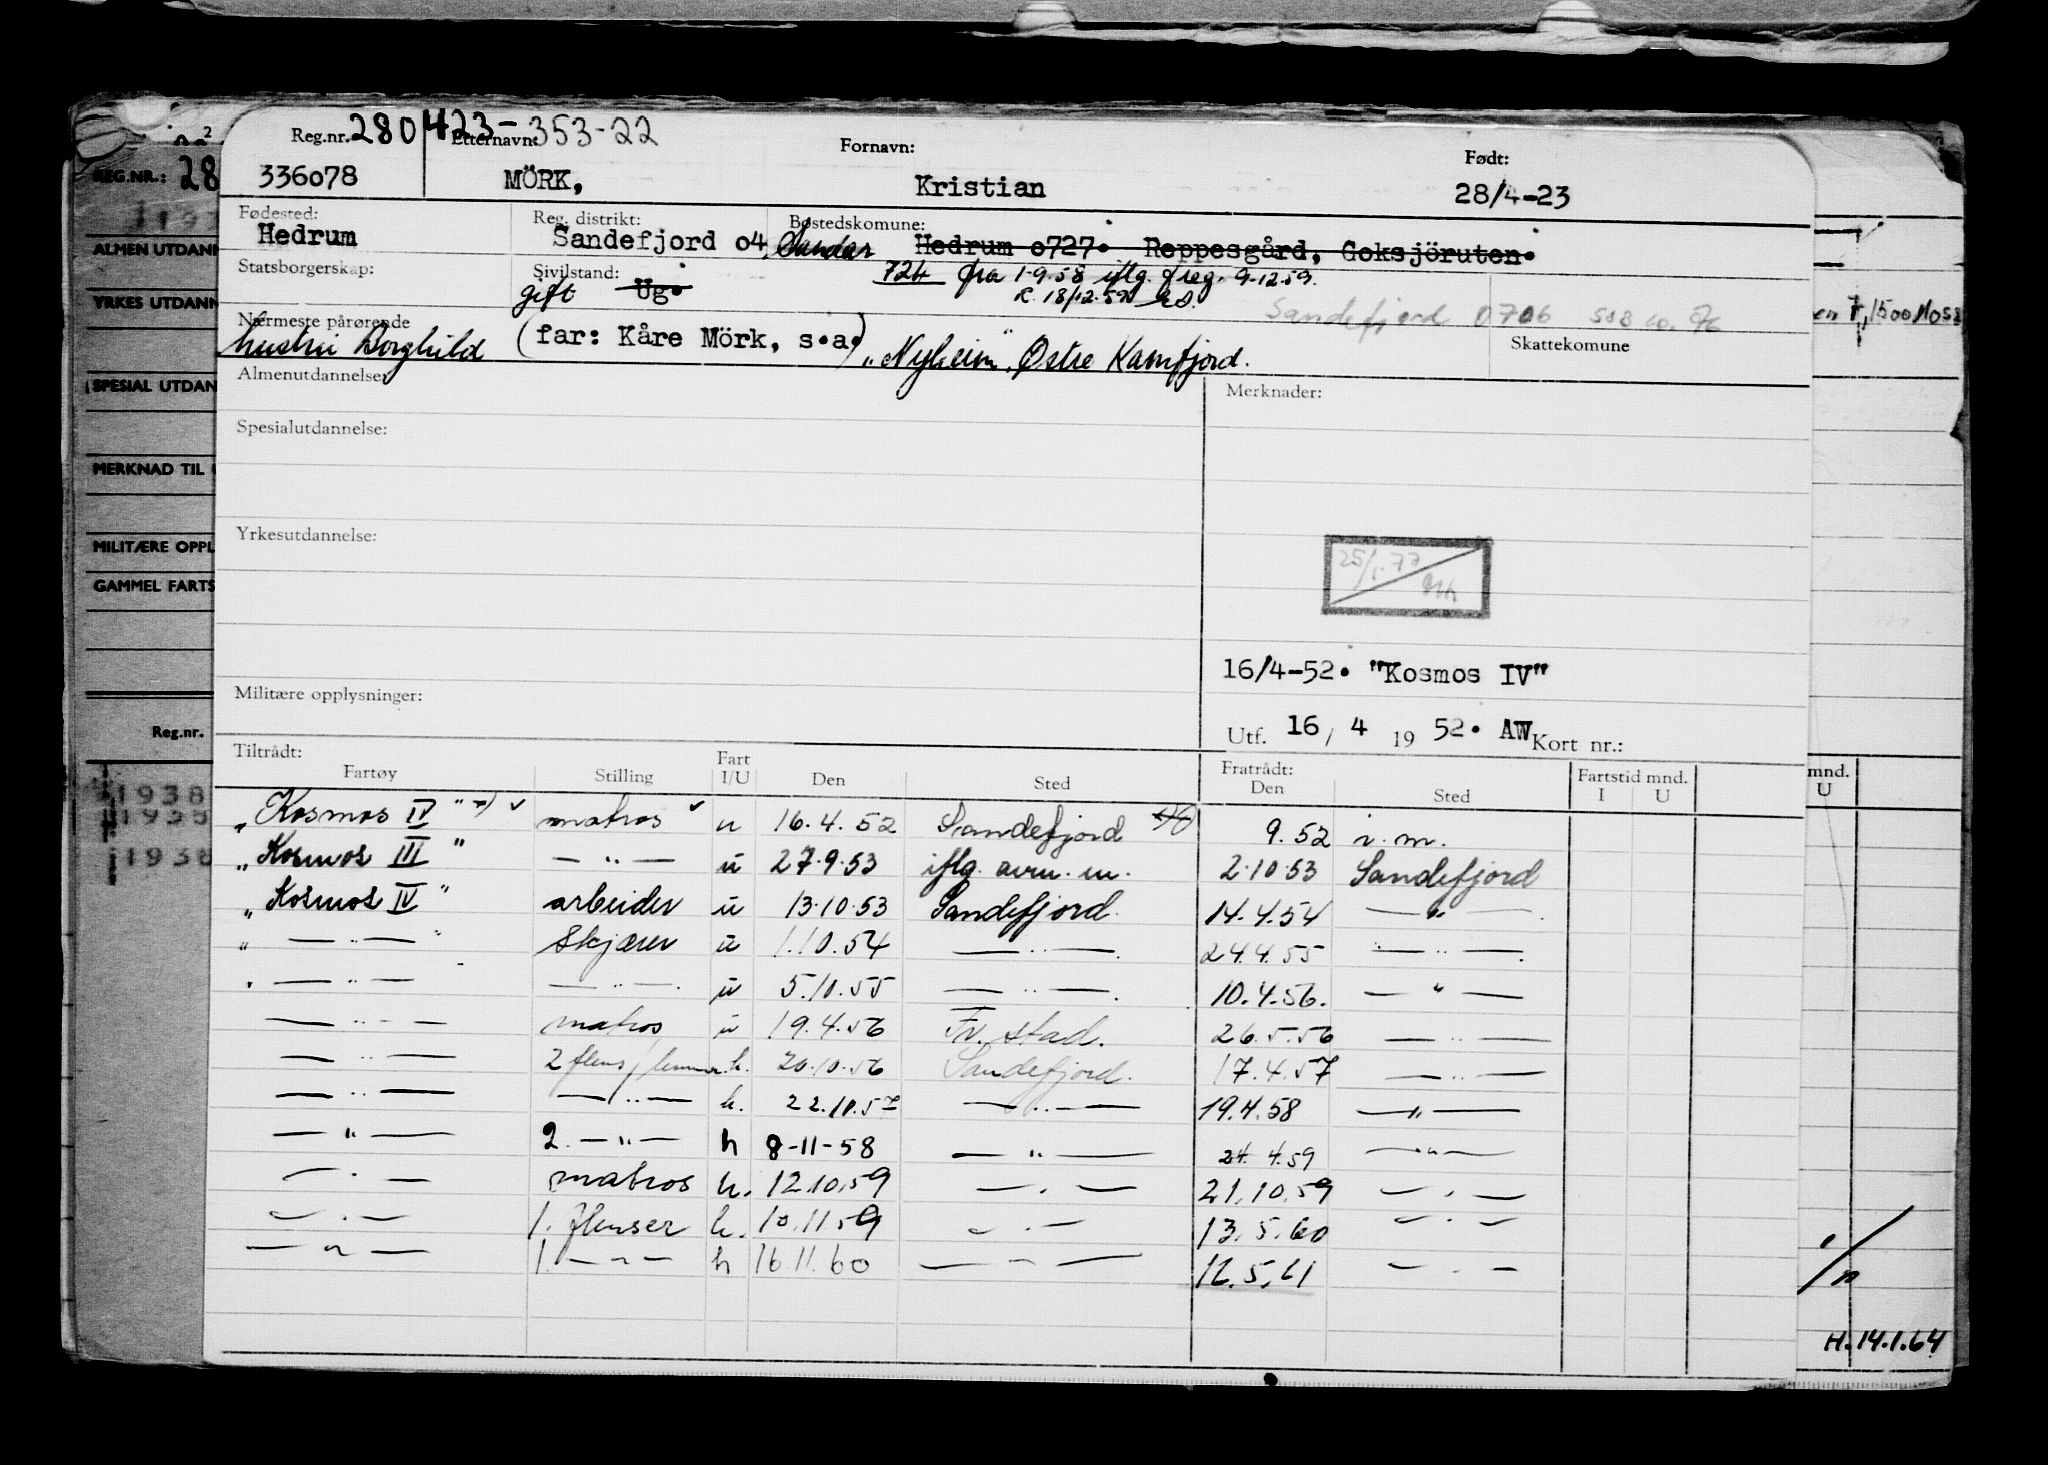 Reg.nr. 280423-353-22 Etternavn: Fornavn: Født:
336078 MÖRK, Kristian 28/4-23
Fødested: Reg. distrikt: Bostedskomune:
Hedrum Sandefjord 04 Sandar Hedrum 0727. Reppesgård, Goksjöruten.
Statsborgerskap: Sivilstand: 724 fra 1-9.58 iflg. freg. 9-12.59.
gift Ug. R. 18/12.59
Sandefjord 0706
Nærmeste pårørende Skattekomune
hustru Borghild (far: Kåre Mörk, s.a.) "Nyheim", Østre Kamfjord.
Almenutdannelse: Merknader:
Spesialutdannelse:
Yrkesutdannelse:
25/1.77
16/4-52. "Kosmos IV"
Militære opplysninger:
Utf. 16 / 4 19 52. AW Kort nr.:
Tiltrådt: Fratrådt:
Fartøy Stilling Fart I/U Den Sted Den Sted Fartstid mnd. I U
"Kosmos IV" matros u 16.4.52 Sandefjord 9.52 i.m.
"Kosmos III" — " — u 27.9.53 iflg. avm. m. 2.10.53 Sandefjord
"Kosmos IV" arbeider u 13.10.53 Sandefjord. 14.4.54 — " —
" — " — " Skjærer u 1.10.54 — " — 24.4.55 — " —
" — " — — " — u 5.10.55 — " — 10.4.56. — " —
— " — matros u 19.4.56 Fr.stad. 26.5.56 — " —
— " — 2 flens/lemmer h. 20.10.56 Sandefjord. 17.4.57 — " —
— " — — " — h. 22.10.57 — " — 19.4.58 — " —
— " — 2. — " — h 8-11-58 — " — 24.4.59 — " —
— " — matros h. 12.10.59 — " — 21.10.59 — " —
— " — 1. flenser h. 10.11.59 — " — 13.5.60 — " —
— " — 1. — " — h 16.11.60 — " — 12.5.61 — " —
REG.NR.: 28
ALMEN UTDANN
YRKES UTDANN
SPESIAL UTDAN
MERKNAD TIL
MILITÆRE OPPL
GAMMEL FARTS
Reg.nr.
1938
1938
1938
1500
mnd.
U
H. 14.1.64